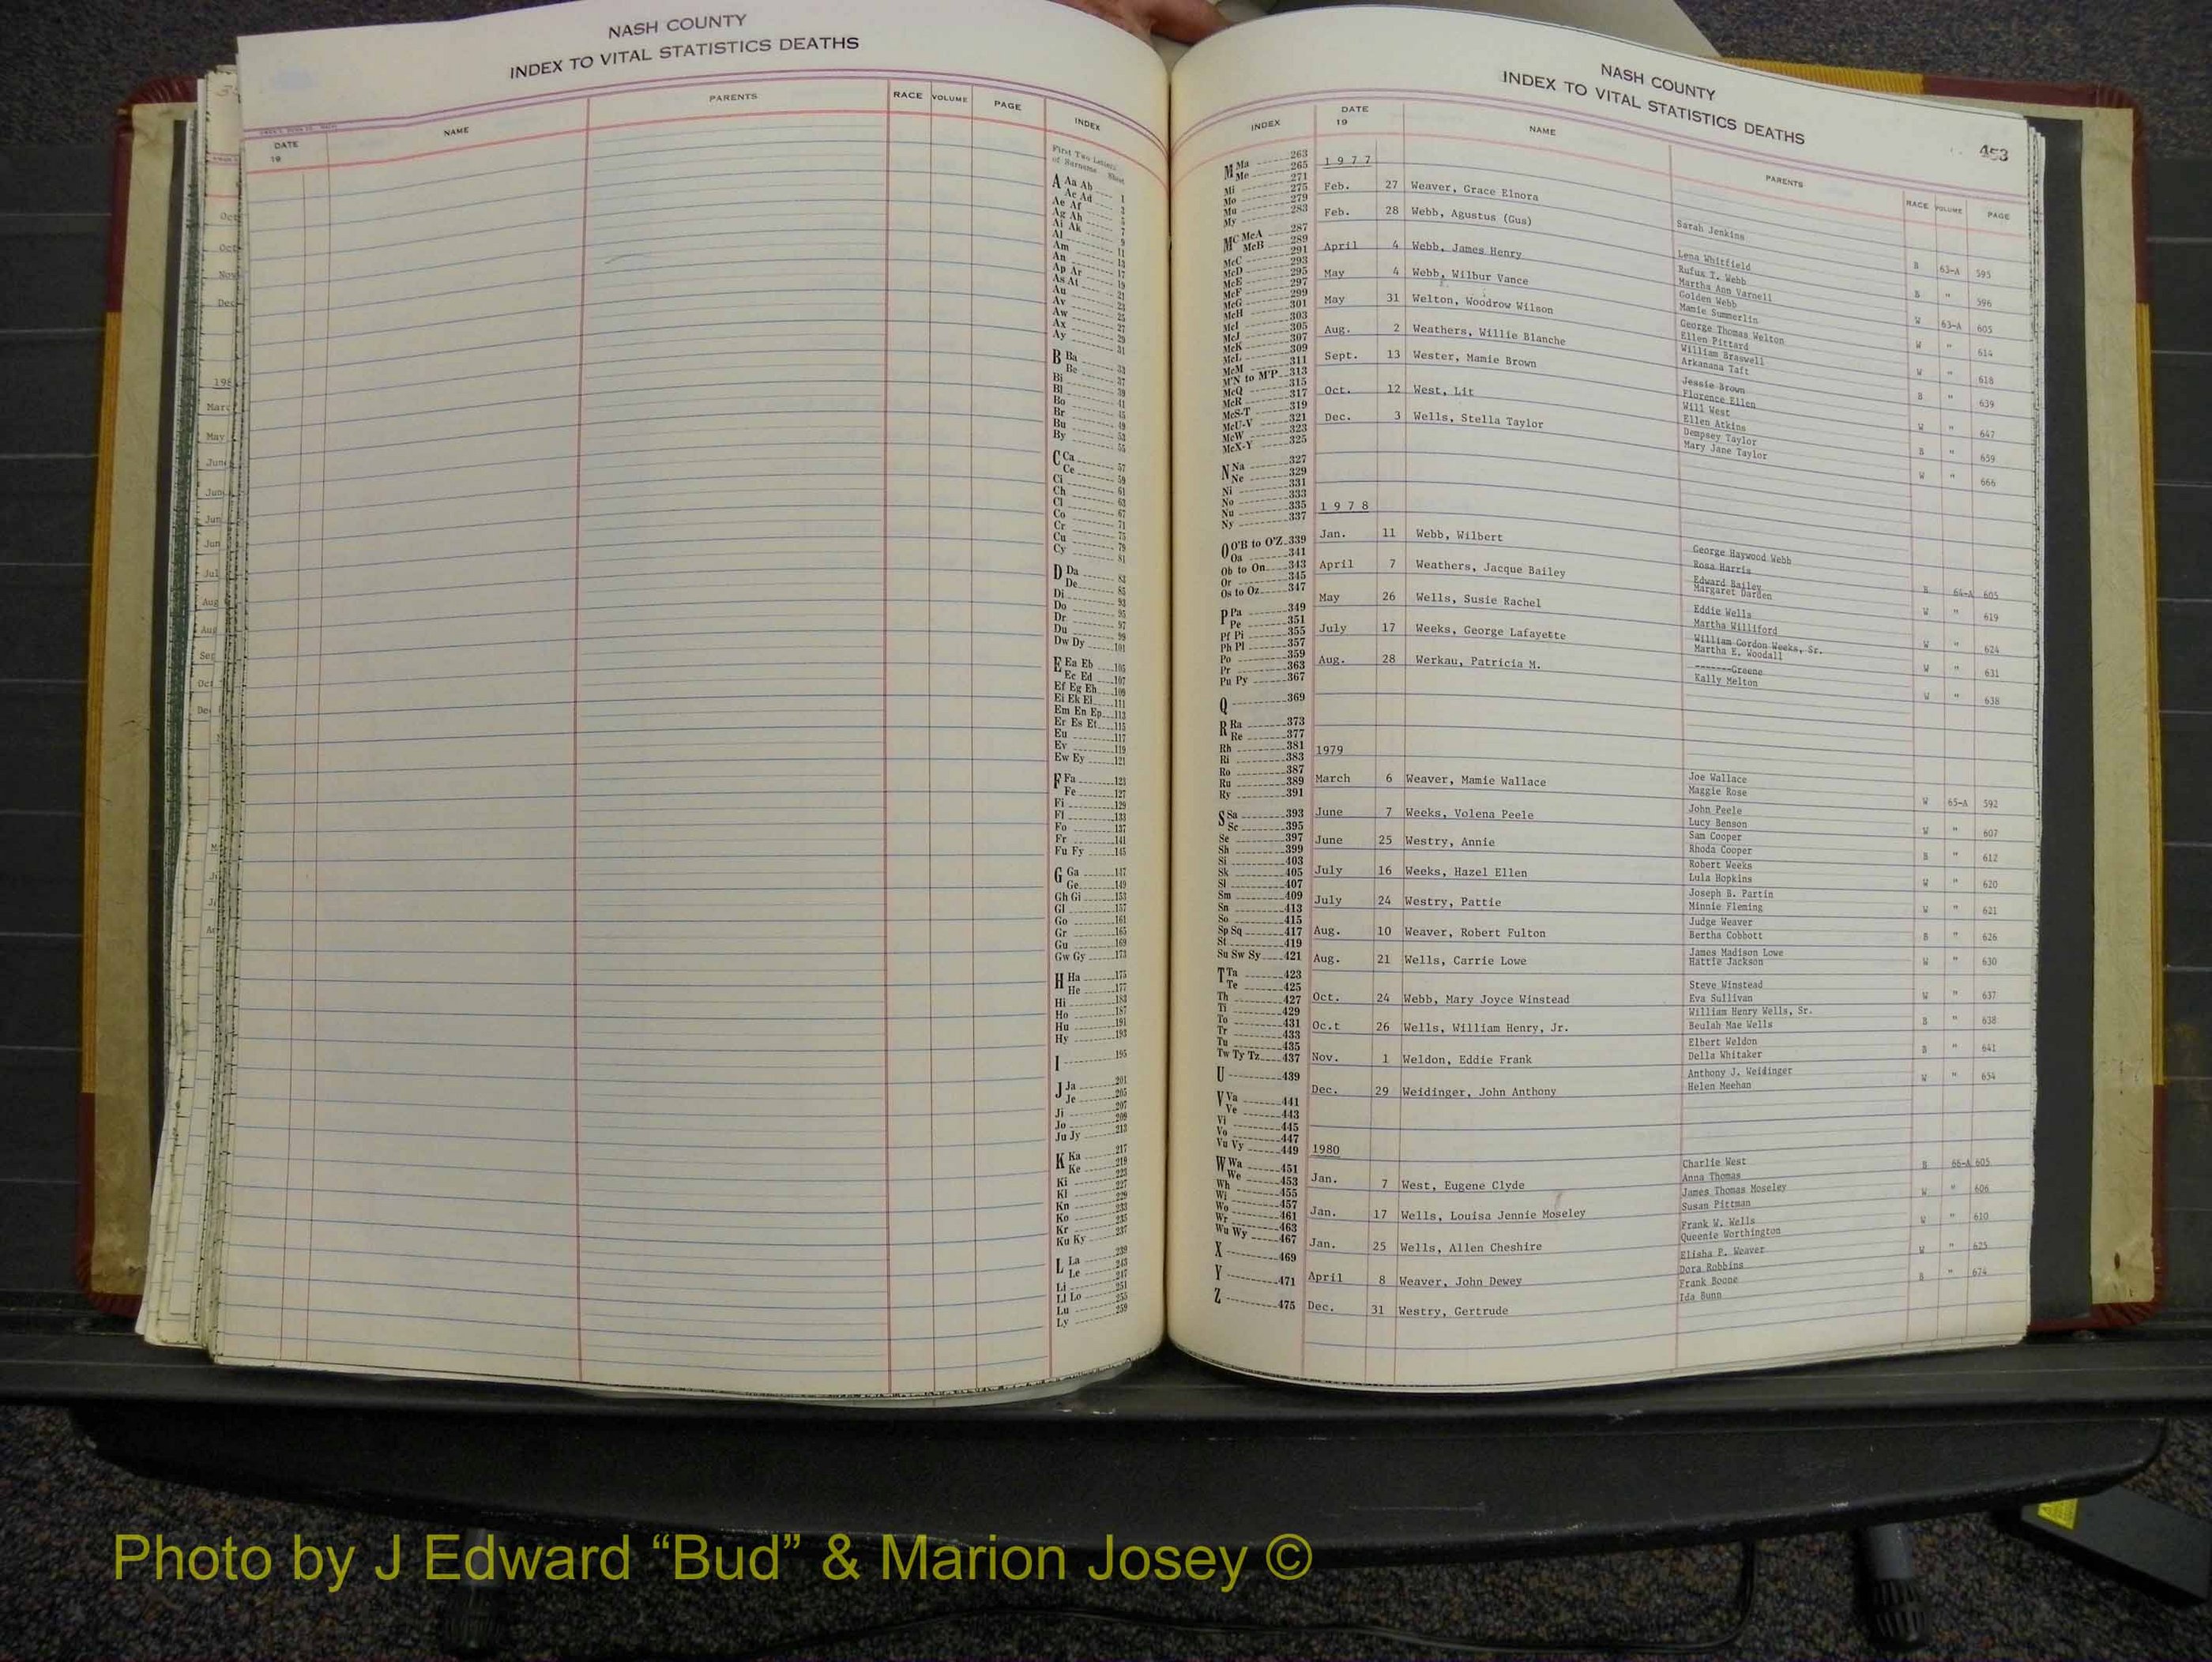 NASH COUNTY
INDEX TO VITAL STATISTICS DEATHS
DATE 19 NAME PARENTS RACE VOLUME PAGE INDEX
First Two Letters
of Surname Sheet
A Aa Ab 1
Ac Ad 3
Ae Af 5
Ag Ah 7
Ai Ak 9
Al 11
Am 13
An 17
Ap Ar 19
As At 21
Au 23
Av 25
Aw 27
Ax 29
Ay 31
B Ba 33
Be 37
Bi 39
Bl 41
Bo 45
Br 49
Bu 53
By 55
C Ca 57
Ce 59
Ci 61
Ch 63
Cl 67
Co 71
Cr 75
Cu 79
Cy 81
D Da 83
De 85
Di 93
Do 95
Dr 97
Du 99
Dw Dy 101
E Ea Eb 105
Ec Ed 107
Ef Eg Eh 109
Ei Ek El 111
Em En Ep 113
Er Es Et 115
Eu 117
Ev 119
Ew Ey 121
F Fa 123
Fe 127
Fi 129
Fl 133
Fo 137
Fr 141
Fu Fy 145
G Ga 147
Ge 149
Gh Gi 153
Gl 157
Go 161
Gr 165
Gu 169
Gw Gy 173
H Ha 175
He 177
Hi 183
Ho 187
Hu 191
Hy 193
I 195
J Ja 201
Je 205
Ji 207
Jo 209
Ju Jy 213
K Ka 217
Ke 219
Ki 223
Kl 227
Kn 229
Ko 233
Kr 235
Ku Ky 237
L La 239
Le 243
Li 247
Ll Lo 251
Lu 255
Ly 259
NASH COUNTY
INDEX TO VITAL STATISTICS DEATHS
453
INDEX DATE 19 NAME PARENTS RACE VOLUME PAGE
M Ma 263
Me 265
Mi 271
Mo 275
Mu 279
My 283
MC McA 287
M' McB 289
McC 291
McD 293
McE 295
McF 297
McG 299
McH 301
McI 303
McJ 305
McK 307
McL 309
McM 311
M'N to M'P 313
McQ 315
McR 317
McS-T 319
McU-V 321
McW 323
McX-Y 325
N Na 327
Ne 329
Ni 331
No 333
Nu 335
Ny 337
O O'B to O'Z 339
Oa 341
Ob to On 343
Or 345
Os to Oz 347
P Pa 349
Pe 351
Pf Pi 355
Ph Pl 357
Po 359
Pr 363
Pu Py 367
Q 369
R Ra 373
Re 377
Rh 381
Ri 383
Ro 387
Ru 389
Ry 391
S Sa 393
Sc 395
Se 397
Sh 399
Si 403
Sk 405
Sl 407
Sm 409
Sn 413
So 415
Sp Sq 417
St 419
Su Sw Sy 421
T Ta 423
Te 425
Th 427
Ti 429
To 431
Tr 433
Tu 435
Tw Ty Tz 437
U 439
V Va 441
Ve 443
Vi 445
Vo 447
Vu Vy 449
W Wa 451
We 453
Wh 455
Wi 457
Wo 461
Wr 463
Wu Wy 467
X 469
Y 471
Z 475
1977
Feb. 27 Weaver, Grace Elnora Sarah Jenkins B 63-A 595
Feb. 28 Webb, Agustus (Gus) Lena Whitfield B " 596
April 4 Webb, James Henry Rufus T. Webb
Martha Ann Varnell W 63-A 605
May 4 Webb, Wilbur Vance Golden Webb
Mamie Summerlin W " 614
May 31 Welton, Woodrow Wilson George Thomas Welton
Ellen Pittard W " 618
Aug. 2 Weathers, Willie Blanche William Braswell
Arkanana Taft B " 639
Sept. 13 Wester, Mamie Brown Jessie Brown
Florence Ellen W " 647
Oct. 12 West, Lit Will West
Ellen Atkins B " 659
Dec. 3 Wells, Stella Taylor Dempsey Taylor
Mary Jane Taylor W " 666
1978
Jan. 11 Webb, Wilbert George Haywood Webb
Rosa Harris B 64-A 605
April 7 Weathers, Jacque Bailey Edward Bailey
Margaret Darden W " 619
May 26 Wells, Susie Rachel Eddie Wells
Martha Williford W " 624
July 17 Weeks, George Lafayette William Gordon Weeks, Sr.
Martha E. Woodall W " 631
Aug. 28 Werkau, Patricia M. -------Greene
Kally Melton W " 638
1979
March 6 Weaver, Mamie Wallace Joe Wallace
Maggie Rose W 65-A 592
June 7 Weeks, Volena Peele John Peele
Lucy Benson W " 607
June 25 Westry, Annie Sam Cooper
Rhoda Cooper B " 612
July 16 Weeks, Hazel Ellen Robert Weeks
Lula Hopkins W " 620
July 24 Westry, Pattie Joseph B. Partin
Minnie Fleming W " 621
Aug. 10 Weaver, Robert Fulton Judge Weaver
Bertha Cobbott B " 626
Aug. 21 Wells, Carrie Lowe James Madison Lowe
Hattie Jackson W " 630
Oct. 24 Webb, Mary Joyce Winstead Steve Winstead
Eva Sullivan W " 637
Oc.t 26 Wells, William Henry, Jr. William Henry Wells, Sr.
Beulah Mae Wells B " 638
Nov. 1 Weldon, Eddie Frank Elbert Weldon
Della Whitaker B " 641
Dec. 29 Weidinger, John Anthony Anthony J. Weidinger
Helen Meehan W " 654
1980
Jan. 7 West, Eugene Clyde Charlie West
Anna Thomas B 66-A 605
Jan. 17 Wells, Louisa Jennie Moseley James Thomas Moseley
Susan Pittman W " 606
Jan. 25 Wells, Allen Cheshire Frank W. Wells
Queenie Worthington W " 610
April 8 Weaver, John Dewey Elisha P. Weaver
Dora Robbins W " 625
Dec. 31 Westry, Gertrude Frank Boone
Ida Bunn B " 674
Photo by J Edward “Bud” & Marion Josey ©